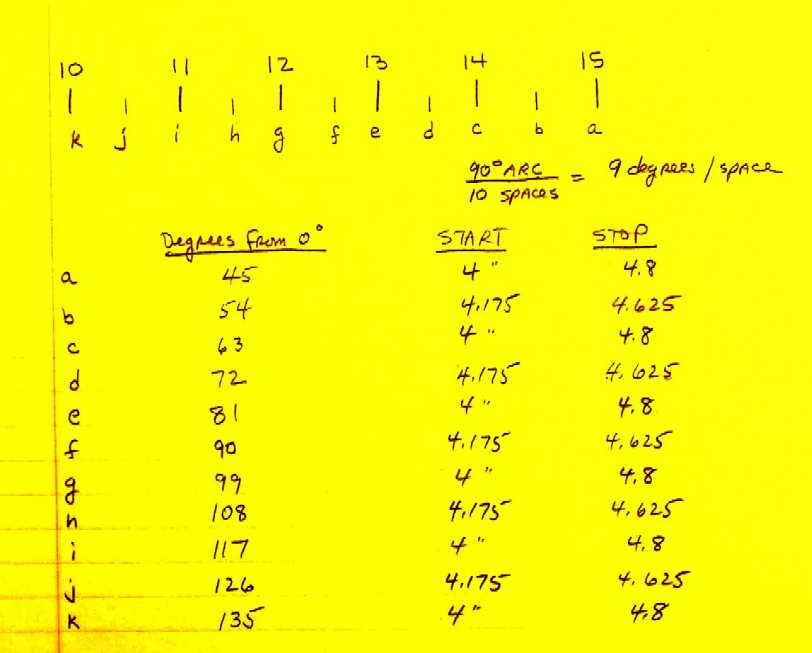 10 11 12 13 14 15
k j i h g f e d c b a
90° ARC / 10 SPACES = 9 degrees / space
Degrees from 0° START STOP
a 45 4" 4.8
b 54 4.175 4.625
c 63 4" 4.8
d 72 4.175 4.625
e 81 4" 4.8
f 90 4.175 4.625
g 99 4" 4.8
h 108 4.175 4.625
i 117 4" 4.8
j 126 4.175 4.625
k 135 4" 4.8